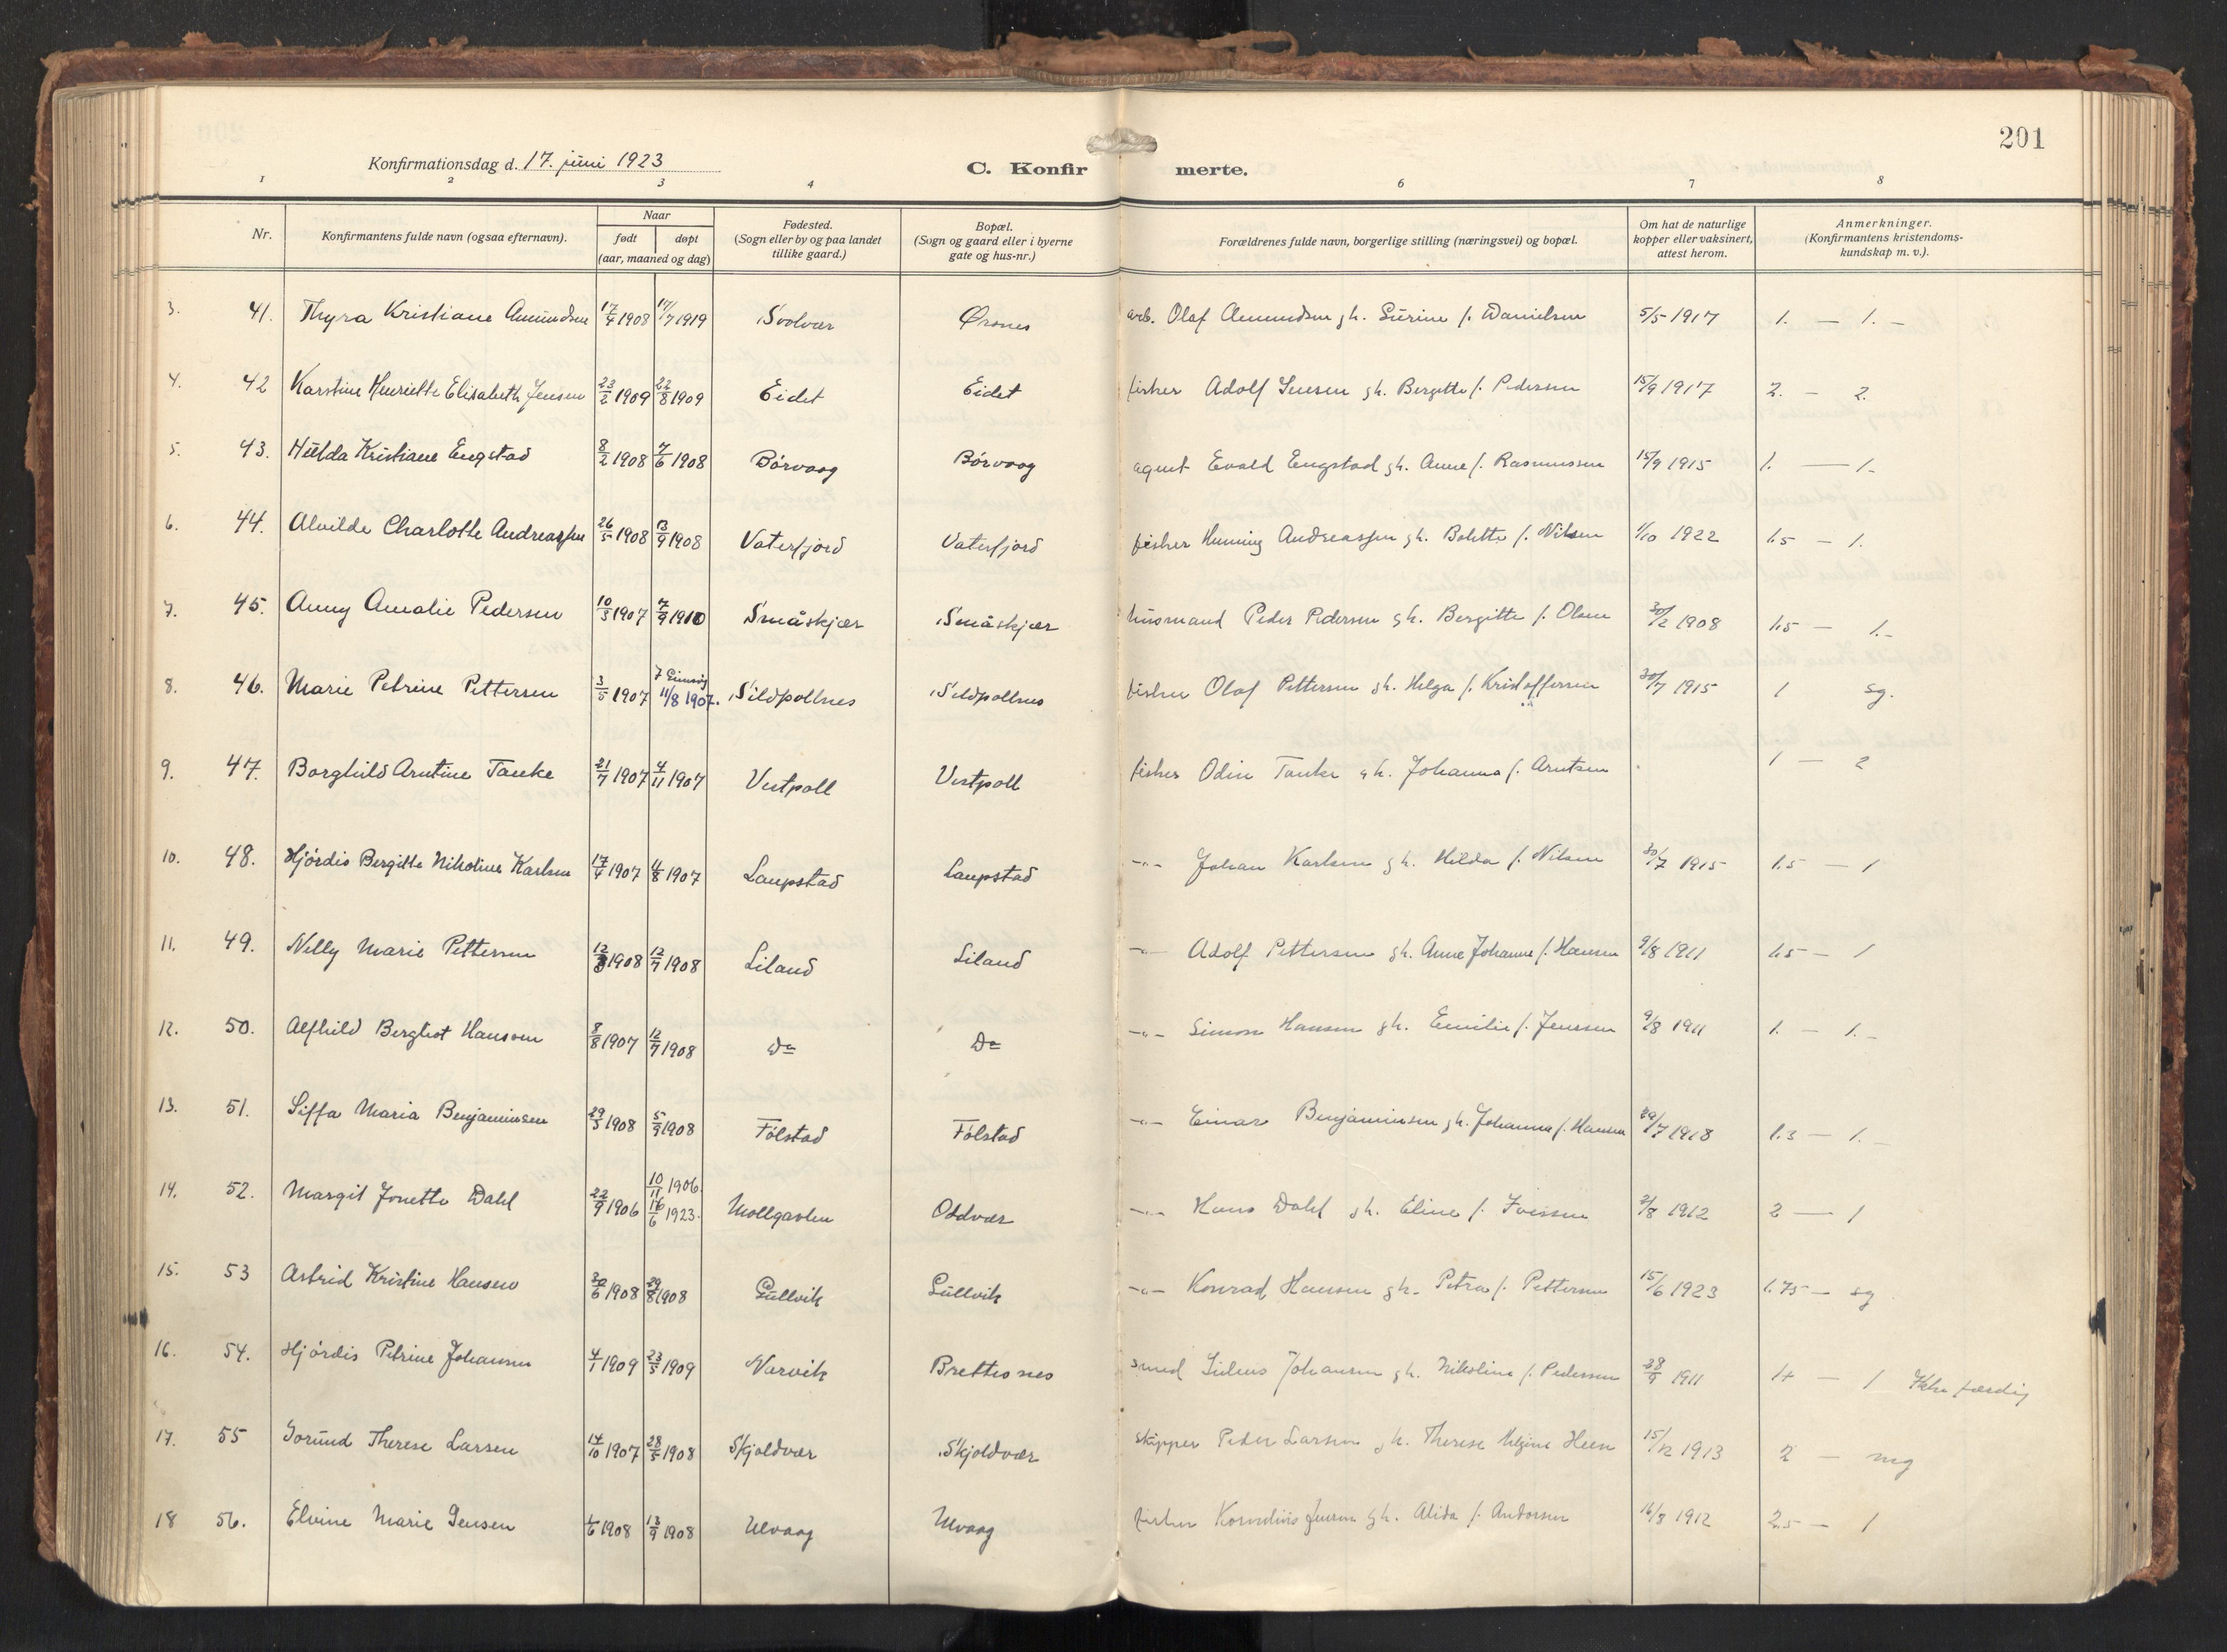 201
Konfirmationsdag d. 17. juni 1923
C. Konfirmerte.
1 2 3 4 6 7 8
Nr.
Konfirmantens fulde navn (ogsaa efternavn).
Naar
født døpt
(aar, maaned og dag)
Fødested.
(Sogn eller by og paa landet
tillike gaard.)
Bopæl.
(Sogn og gaard eller i byerne
gate og hus-nr.)
Forældrenes fulde navn, borgerlige stilling (næringsvei) og bopæl.
Om hat de naturlige
kopper eller vaksinert,
attest herom.
Anmerkninger.
(Konfirmantens kristendoms-
kundskap m. v.).
3. 41. Thyra Kristiane Amundsen 17/4 1908 17/7 1919 Svolvær Ørsnes arb. Olaf Amundsen gh. Surine f. Danielsen 5/5 1917 1. — 1. -
4. 42 Karstine Henriette Elisabeth Jensen 23/2 1909 22/8 1909 Eidet Eidet fisker Adolf Jensen gh. Bergitte f. Pedersen 15/9 1917 2. - 2.
5. 43. Hulda Kristiane Engstad 8/2 1908 7/6 1908 Børvaag Børvaag agent Evald Engstad gh. Anne f. Rasmussen 15/9 1915 1. — 1.-
6. 44. Alvilde Charlotte Andreassen 26/5 1908 13/9 1908 Vaterfjord Vaterfjord fisker Henning Andreassen gh. Bolette f. Nilsen 1/10 1922 1.5 — 1.
7. 45. Anny Amalie Pedersen 10/3 1907 7/9 1910 Småskjær Småskjær husmand Peder Pedersen gh. Bergitte f. Olsen 30/2 1908 1.5 — 1.-
8. 46. Marie Petrine Pettersen 3/5 1907 11/8 1907. Sildpollnes Sildpollnes fisker Olaf Pettersen gh. Helga f. Kristoffersen 30/7 1915 1 sg.
9. 47. Borghild Arntine Tanke 21/7 1907 4/11 1907 Vestpoll Vestpoll fisker Odin Tanke gh. Johanna f. Arntsen 1 — 2
10. 48. Hjørdis Bergitte Nikoline Karlsen 17/4 1907 4/8 1907 Laupstad Laupstad -"- Johan Karlsen gh. Hilda f. Nilsen 30/7 1915 1.5 — 1
11. 49. Nelly Marie Pettersen 12/3 1908 12/7 1908 Liland Liland -"- Adolf Pettersen gh. Anne Johanne f. Hansen 9/8 1911 1.5 — 1
12. 50. Alfhild Bergliot Hansen 8/8 1907 12/7 1908 Do Do -"- Simon Hansen gh. Emilie f. Jenssen 9/8 1911 1. — 1. -
13. 51. Siffa Maria Benjaminsen 29/5 1908 5/9 1908 Følstad Følstad -"- Einar Benjaminsen gh. Johanna f. Hansen 29/7 1918 1.3 — 1. -
14. 52. Margit Jonette Dahl 22/9 1906 10/11 1906. 16/6 1923. Mollgavlen Oddvær -"- Hans Dahl gh. Eline f. Iversen 2/8 1912 2 — 1
15. 53 Astrid Kristine Hansen 30/6 1908 29/8 1908 Gullvik Gullvik -"- Konrad Hansen gh. Petra f. Pettersen 15/6 1923 1.75 — sg
16. 54. Hjørdis Petrine Johansen 4/1 1909 23/5 1909 Narvik Brettesnes smed Julius Johansen gh. Nikoline f. Pedersen 28/9 1911 1+ — 1 Ikke færdig
17. 55 Jorund Therese Larsen 14/10 1907 28/5 1908 Skjoldvær Skjoldvær skipper Peder Larsen gh. Therese Helgine Heen 15/12 1913 2 — mg
18 56. Elvine Marie Jensen 1/6 1908 13/9 1908 Ulvaag Ulvaag fisker Kornelius Jensen gh. Alida f. Andorsen 16/8 1912 2.5 — 1